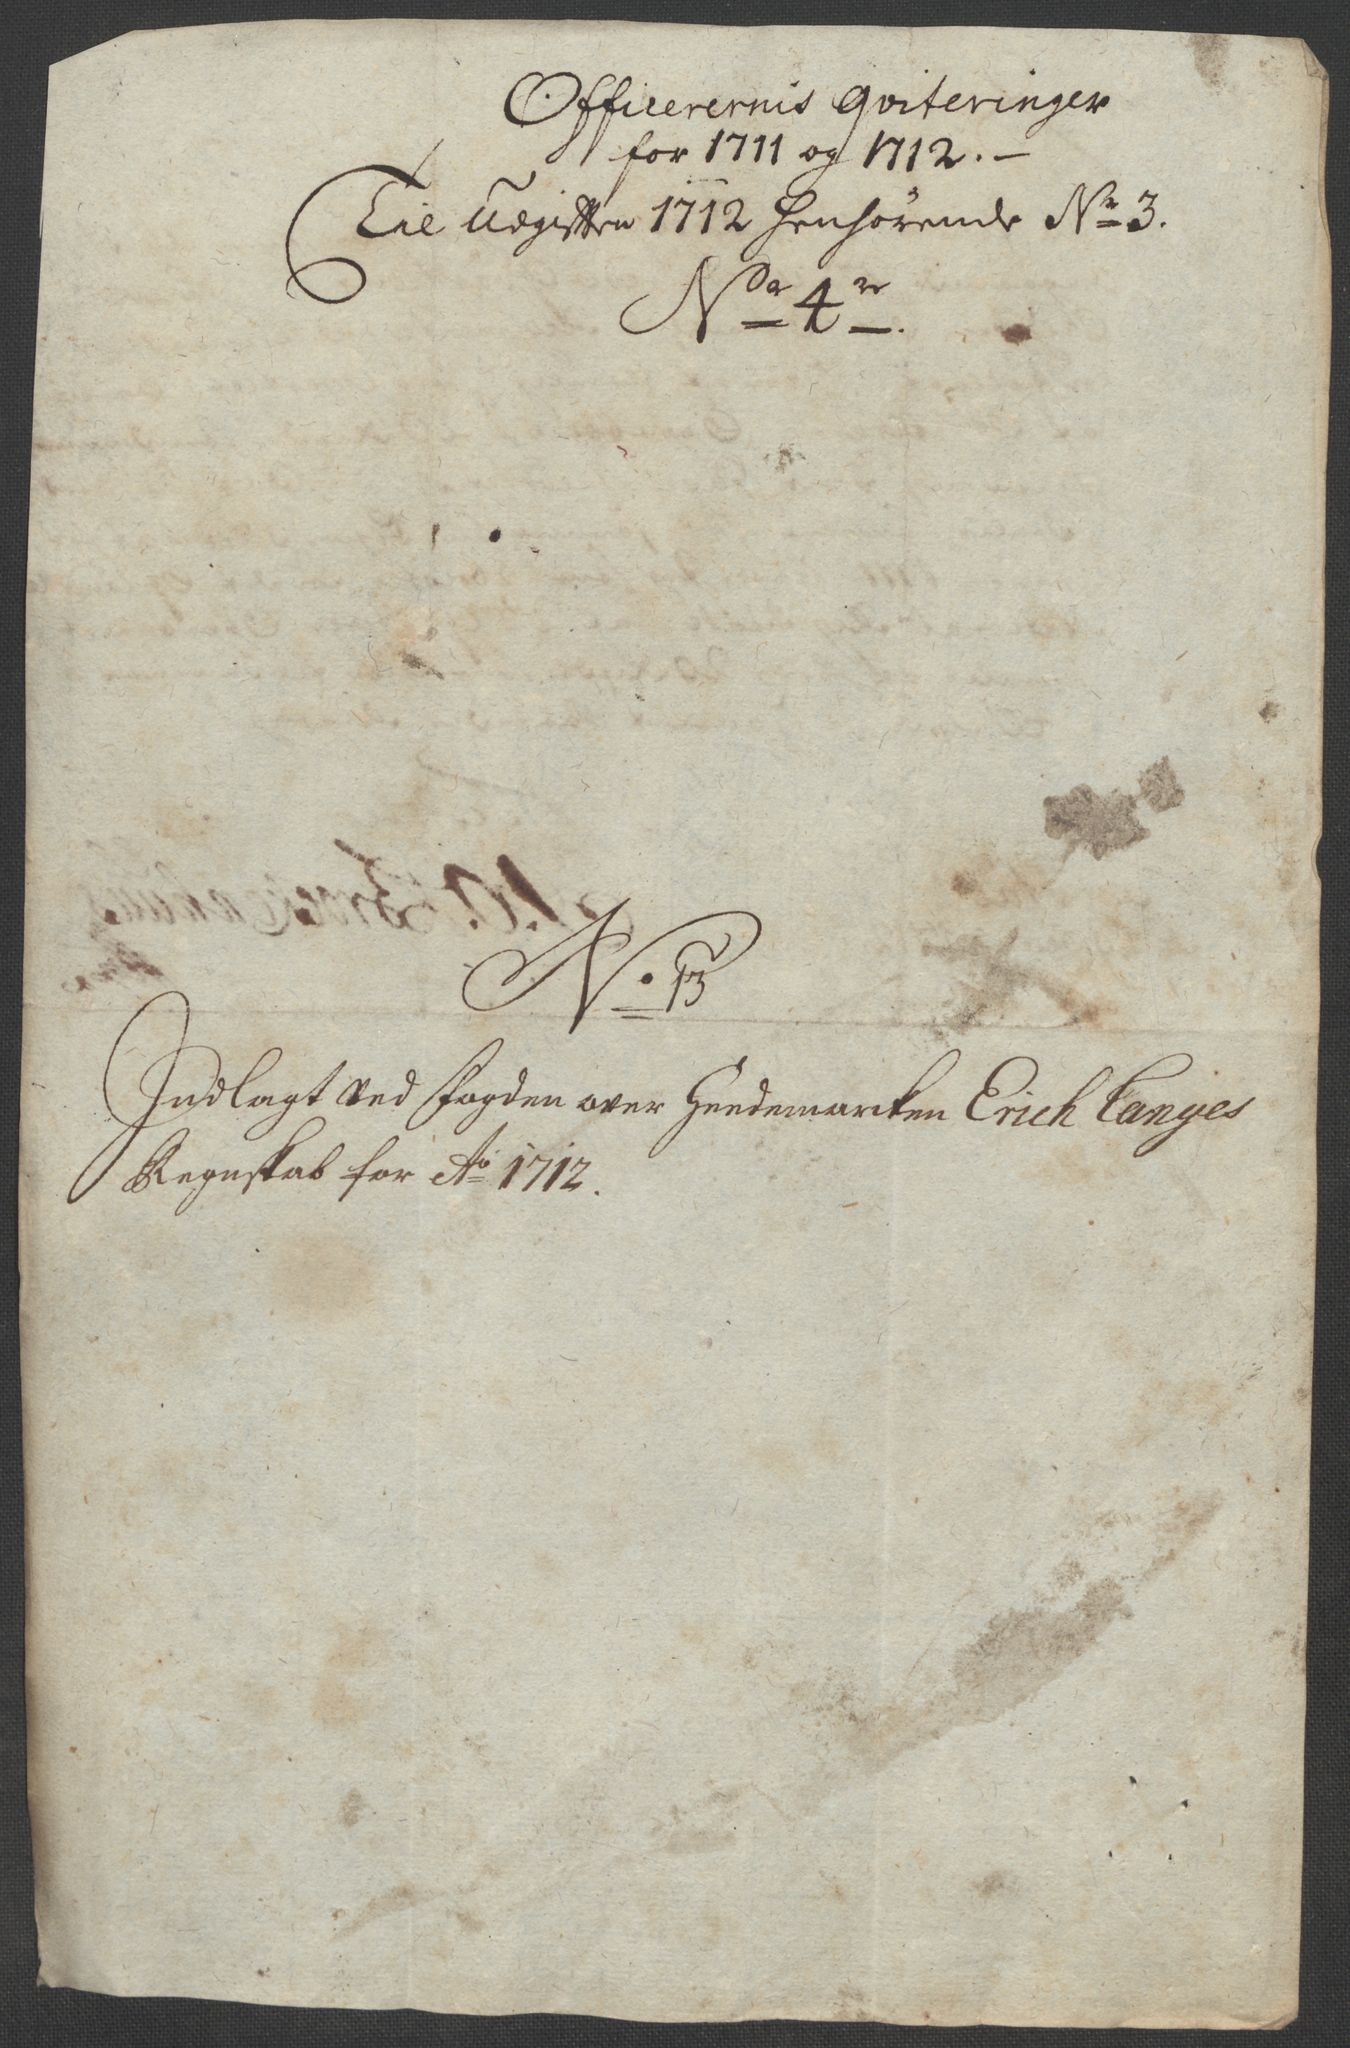 Officerernis Qviteringer
for 1711 og 1712. –
Til Udgifften 1712 henhörende No 3.
No 4
No 13
Indlagt ved Fogden over Heedemarcken Erich Langes
Regnskab for Ao 1712.